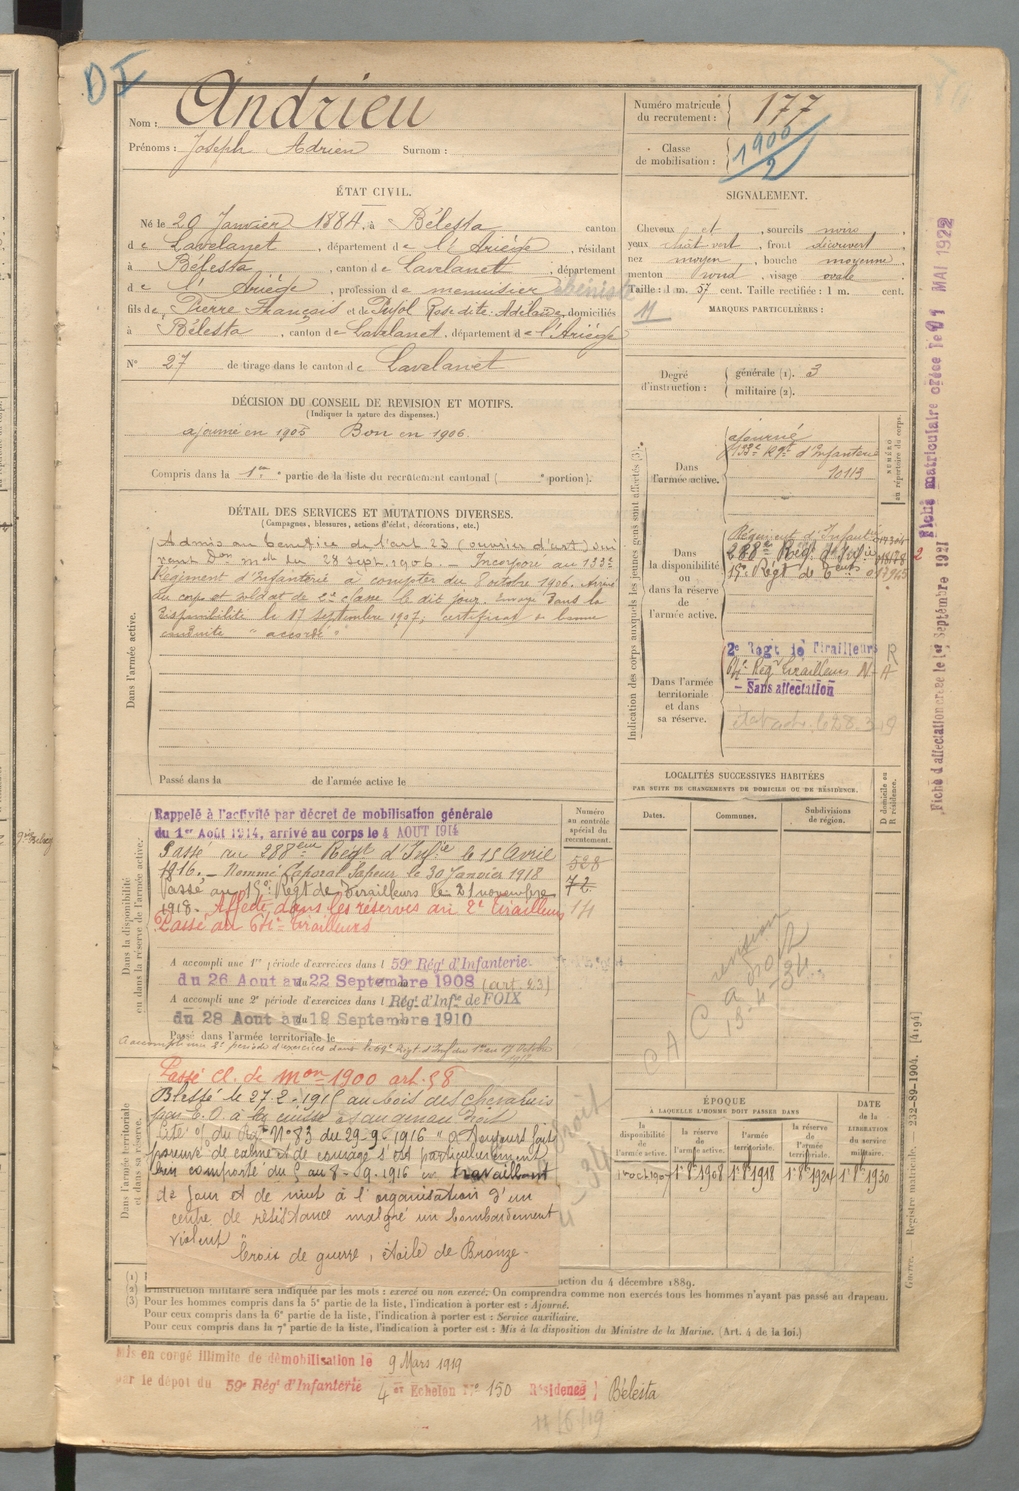 D I
Nom : Andrieu
Prénoms : Joseph Adrien Surnom :
Numéro matricule du recrutement : 177
Classe de mobilisation : 1900/2
ÉTAT CIVIL.
Né le 20 Janvier 1884, à Bélesta canton
de Lavelanet, département de l'Ariège, résidant
à Bélesta, canton de Lavelanet, département
de l'Ariège, profession de menuisier ébéniste
fils de Pierre François et de Pujol Rose dite Adelaïde, domiciliés
à Bélesta, canton de Lavelanet, département de l'Ariège
N° 27 de tirage dans le canton de Lavelanet
SIGNALEMENT.
Cheveux et, sourcils noirs,
yeux chât vert, front découvert,
nez moyen, bouche moyenne,
menton rond, visage ovale.
Taille : 1 m. 57 cent. Taille rectifiée : 1 m. cent.
MARQUES PARTICULIÈRES :
Degré d'instruction : générale (1). 3
militaire (2).
DÉCISION DU CONSEIL DE REVISION ET MOTIFS.
(Indiquer la nature des dispenses.)
ajourné en 1905 Bon en 1906.
Compris dans la 1re partie de la liste du recrutement cantonal ( e portion).
DÉTAIL DES SERVICES ET MUTATIONS DIVERSES.
(Campagnes, blessures, actions d'éclat, décorations, etc.)
Dans l'armée active.
Admis au bénéfice de l'art 23 (ouvrier d'art) sui
vant Don melle du 28 sept. 1906. – Incorporé au 133e
Régiment d'Infanterie à compter du 8 octobre 1906. Arrivé
au corps et soldat de 2e classe le dit jour. Envoyé dans la
disponibilité le 17 septembre 1907, certificat de bonne
conduite "accordé"
Passé dans la de l'armée active le
Indication des corps auxquels les jeunes gens sont affectés (3).
NUMÉRO au répertoire du corps.
Dans l'armée active.
ajourné
133e Rgt d'Infanterie
10113
Dans la disponibilité ou dans la réserve de l'armée active.
Régiment d'Infanterie
288e Régt d'Infie
15e Régt de Tirs
Dans l'armée territoriale et dans sa réserve.
2e Régt de Tirailleurs R
64e Régt Tirailleurs N-A
– Sans affectation
LOCALITÉS SUCCESSIVES HABITÉES
PAR SUITE DE CHANGEMENTS DE DOMICILE OU DE RÉSIDENCE.
Dates. Communes. Subdivisions de région. D domicile ou R résidence.
Dans la disponibilité ou dans la réserve de l'armée active.
Numéro au contrôle spécial du recrutement.
Rappelé à l'activité par décret de mobilisation générale
du 1er Août 1914, arrivé au corps le 4 AOUT 1914
Passé au 288ème Régt d'Infie le 15 Avril
1916. – Nommé Caporal Sapeur le 30 Janvier 1918
Passé au 15e Régt de Tirailleurs le 21 novembre
1918. Affecté dans les réserves au 2e Tirailleurs
Passé au 64e Tirailleurs
528
72
14
A accompli une 1re période d'exercices dans l 59e Régt d'Infanterie.
du 26 Aout au 22 Septembre 1908 (art. 23)
A accompli une 2e période d'exercices dans l Régt d'Infie de FOIX
du 28 Aout au 19 Septembre 1910
Passé dans l'armée territoriale le
A accompli une 3e période d'exercices dans le 69e Régt d'Inf du 1er au 17 Octobre
Dans l'armée territoriale et dans sa réserve.
Passé cl. de mon 1900 art. 58
Blessé le 27-2-1915 au bois des chevaliers
par E. O. à la cuisse et au genou droit
Cité o/ du Rgt N° 83 du 29-9-1916 "a toujours fait
preuve de calme et de courage s'est particulièrement
bien comporté du 5 au 8-9-1916 en travaillant
de jour et de nuit à l'organisation d'un
centre de résistance malgré un bombardement
violent"
Croix de guerre, étoile de Bronze –
CAC
pension
à droit
ÉPOQUE
À LAQUELLE L'HOMME DOIT PASSER DANS
la disponibilité de l'armée active. la réserve de l'armée active. l'armée territoriale. la réserve de l'armée territoriale. DATE de la LIBÉRATION du service militaire.
1er oct 1907 1er 8e 1908 1er 8e 1918 1er 8e 1924 1er 8e 1930
(1) uction du 4 décembre 1889.
(2) L'instruction militaire sera indiquée par les mots : exercé ou non exercé. On comprendra comme non exercés tous les hommes n'ayant pas passé au drapeau.
(3) Pour les hommes compris dans la 5e partie de la liste, l'indication à porter est : Ajourné.
Pour ceux compris dans la 6e partie de la liste, l'indication à porter est : Service auxiliaire.
Pour ceux compris dans la 7e partie de la liste, l'indication à porter est : Mis à la disposition du Ministre de la Marine. (Art. 4 de la loi.)
Mis en congé illimité de démobilisation le 9 Mars 1919
par le dépôt du 59e Régt d'Infanterie 4 et Echelon N° 150 Résidence } Bélesta
11/6/19
Fiche matriculaire créée le 01 MAI 1922
Fiche d'affectation créée le 1er Septembre 1921
Guerre. – Registre matricule. – 232-89-1904. [4194]